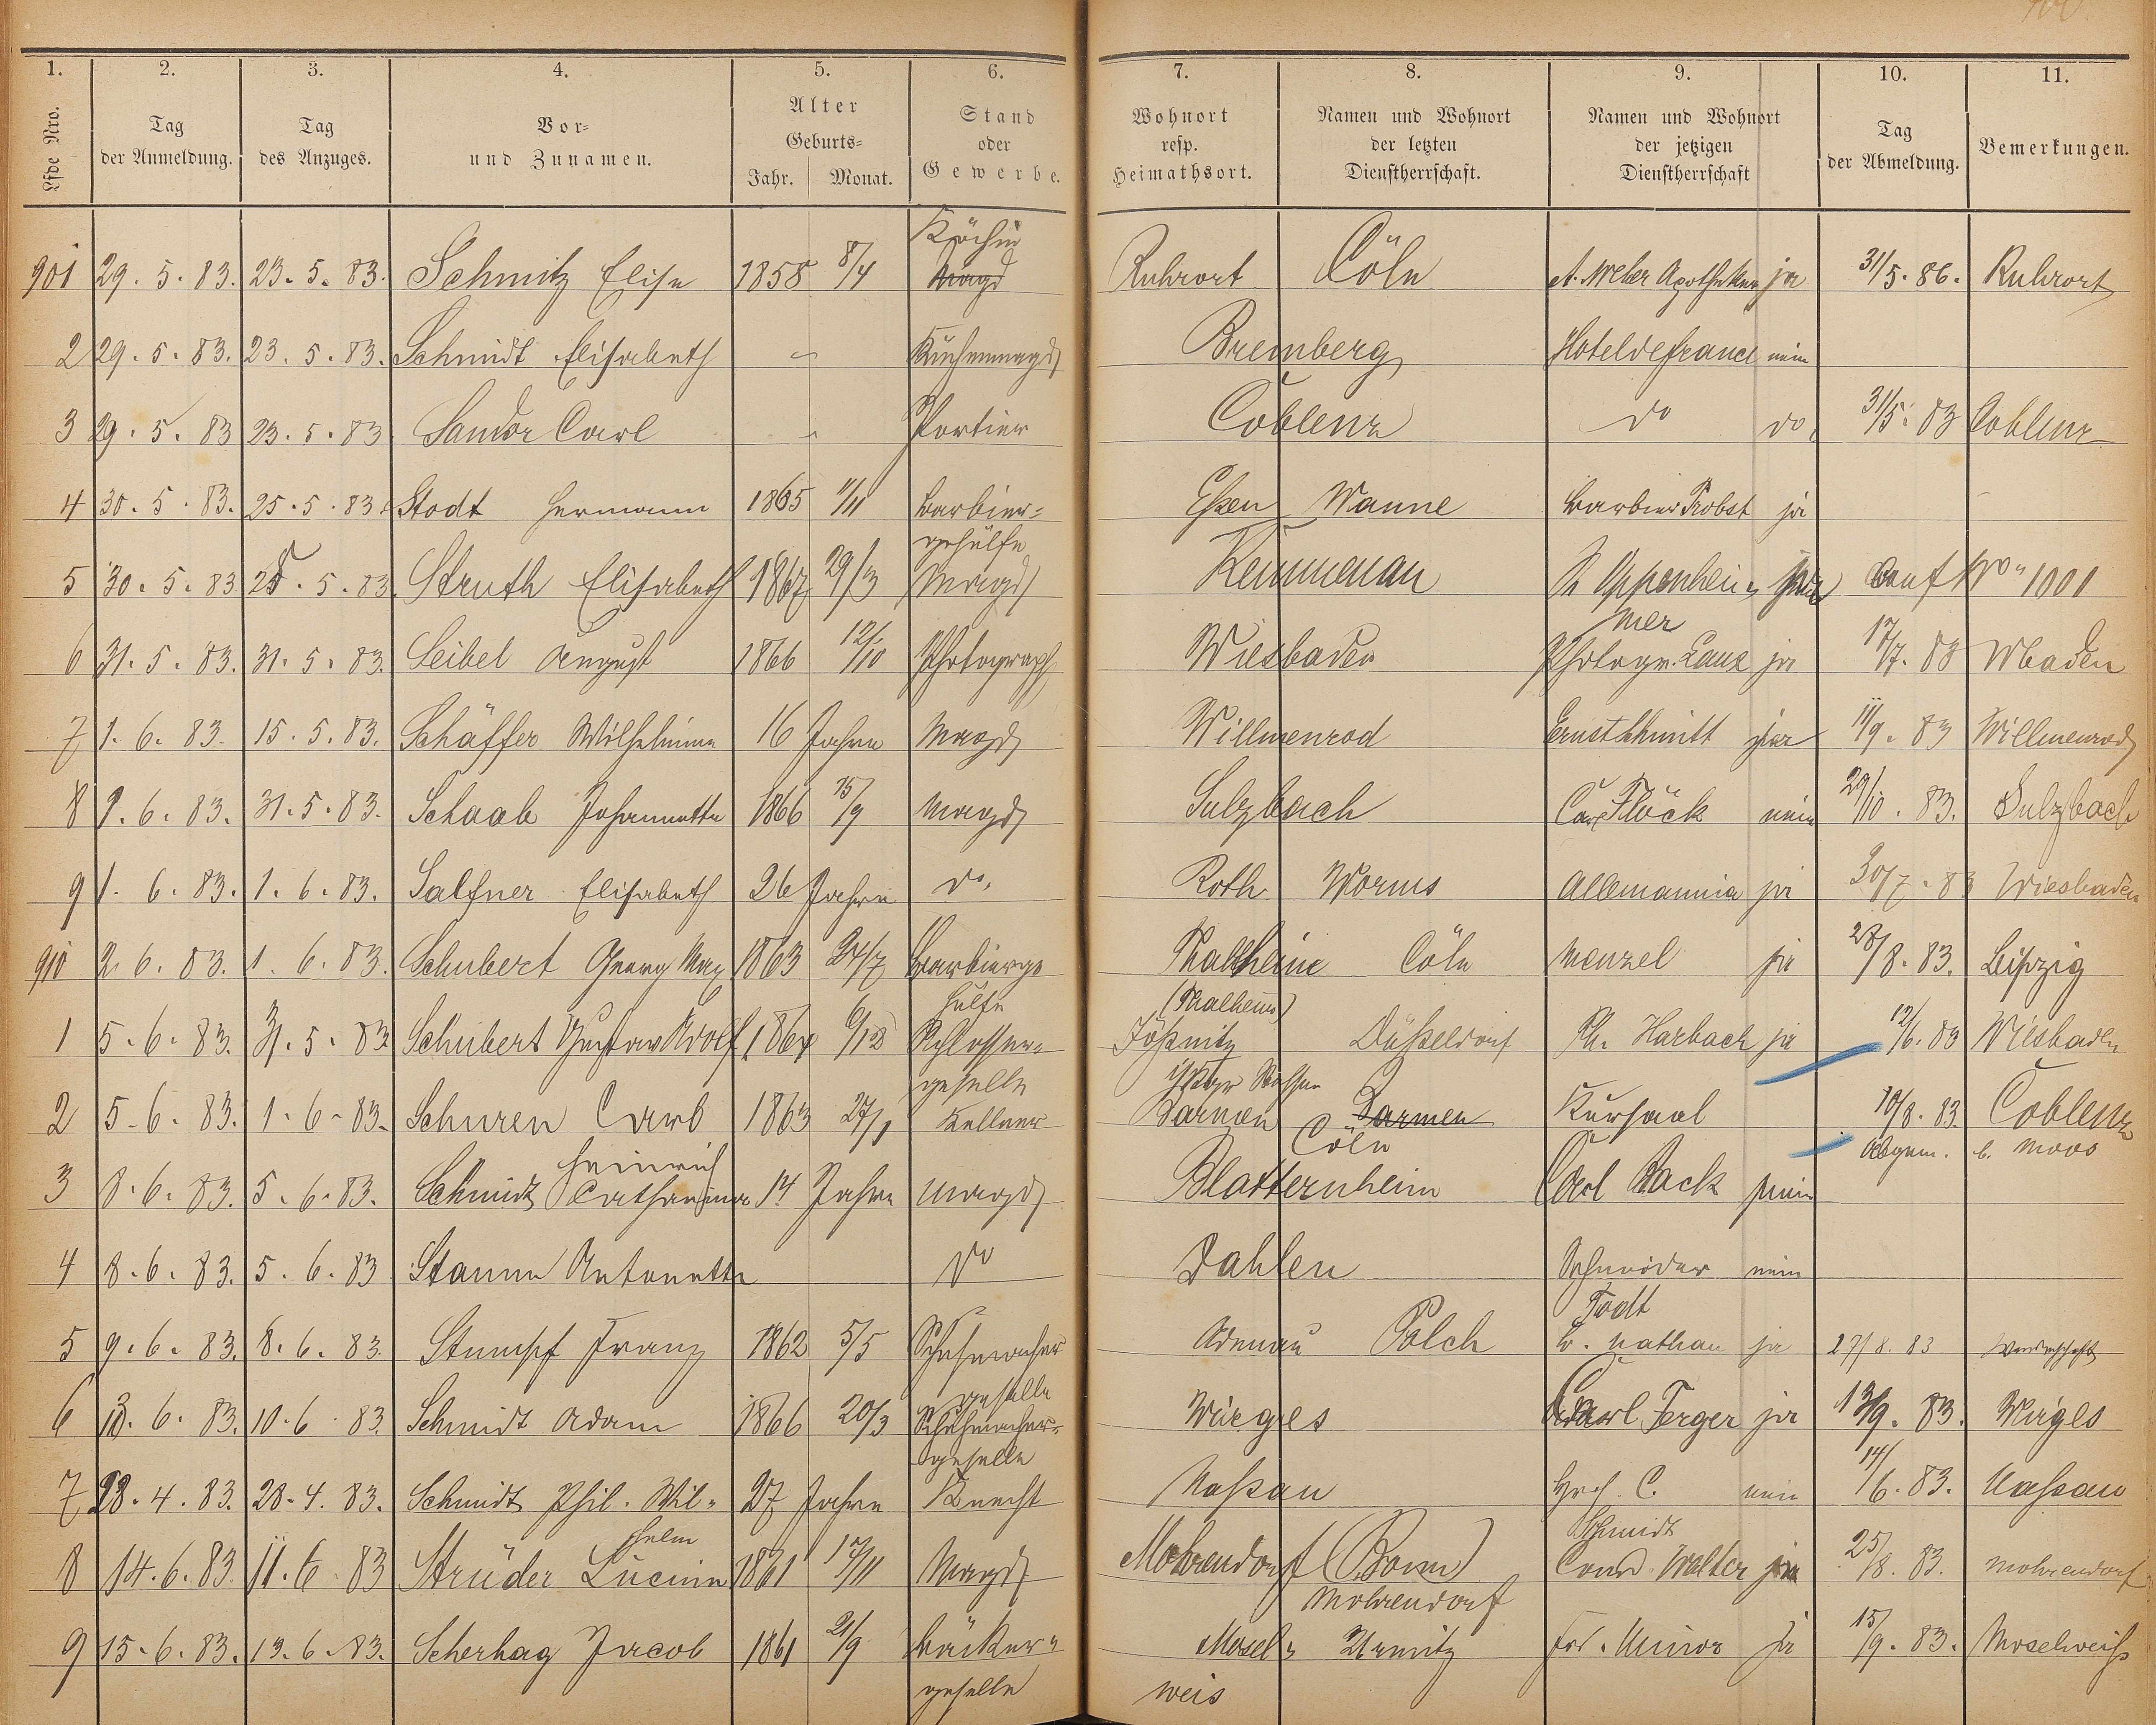 1. 2. 3. 4. 5. 6. 7. 8. 9. 10. 11.
Lfde Nro. Tag der Anmeldung. Tag des Anzuges. Vor- und Zunamen. Alter Geburts- Jahr. Monat. Stand oder Gewerbe. Wohnort resp. Heimathsort. Namen und Wohnort der letzten Dienstherrschaft. Namen und Wohnort der jetzigen Dienstherrschaft Tag der Abmeldung. Bemerkungen.
Köchin
901 29. 5. 83. 23. 5. 83. Schmitz Elise 1858 8/4 Magd Ruhrort Cöln A. Weber Apotheker ja 31/5. 86. Ruhrort
2 29. 5. 83. 23. 5. 83. Schmidt Elisabeth Küchenmagd Bremberg Hotel de france nein
3 29. 5. 83 23. 5. 83 Sandor Carl Portier Coblenz do do. 31/5. 83 Coblenz
4 30. 5. 83. 25. 5. 83. Stodt Hermann 1865 11/11 Barbier= Essen Wanne Barbier Probst ja
gehülfe
5 30. 5. 83. 25. 5. 83. Struth Elisabeth 1867 29/3 Magd Kemmenau Oppenhei= auf No 1001
mer
6 31. 5. 83. 31. 5. 83. Seibel August 1866 12/10 Photograph Wiesbaden Photogr. Lanz ja 17/7. 83 Wbaden
7 1. 6. 83. 15. 5. 83. Schäffer Wilhelmine 16 Jahre Magd Willmenrod Ernst Schmitt ja 11/9. 83 Willmenrod
8 1. 6. 83. 31. 5. 83. Schaab Johannette 1866 15/9 Magd Sulzbach Carl Flöck nein 29/10. 83. Sulzbach
9 1. 6. 83. 1. 6. 83. Salfner Elisabeth 26 Jahre do. Roth Worms Allemannia ja 30/7. 83 Wiesbaden
910 2. 6. 83. 1. 6. 83. Schubert Georg Max 1863 24/7 Barbierge Thalheim Cöln Menzel ja 28/8. 83. Leipzig
hülfe (Thalheim)
1 5. 6. 83. 31. 5. 83 Schubert Gustav Adolf 1864 6/12 Schlosser= Jößnitz Düßeldorf Ph. Harbach ja 12/6. 83 Wiesbaden
geselle
2 5. 6. 83. 1. 6. 83. Schuren Carl 1863 27/1 Kellner Barmen Barmen Kursaal 10/8. 83. Coblenz
Heinrich Cöln Abgem. b. Moos
3 8. 6. 83. 5. 6. 83. Schmidt Catharina 14 Jahre Magd Blatternheim Carl Back nein
4 8. 6. 83. 5. 6. 83 Stamm Antonette do Dahlen Schneider nein
Todt
5 9. 6. 83. 8. 6. 83. Stumpf Franz 1862 5/5 Schuhmacher Adenau Polch W. Nathan ja 27/8. 83 Wanderschaft
geselle
6 13. 6. 83. 10. 6. 83. Schmidt Adam 1866 20/3 Schuhmacher= Wirges Carl Ferger ja 13/9. 83. Wirges
geselle
7 28. 4. 83. 28. 4. 83. Schmidt Phil. Wil= 27 Jahre Knecht Naßau Hch. C. nein 14/6. 83. Naßau
helm Schmidt
8 14. 6. 83. 11. 6. 83 Strüder Lucina 1861 17/11 Magd Mohrendorf (Bonn) Conrd. Walter ja 25/8. 83. Mohrendorf
Mohrendorf
9 15. 6. 83. 13. 6. 83. Scherhag Jacob 1861 21/9 Bäcker= Mosel= Urmitz Frd. Unior ja 15/9. 83. Moselweiß
geselle weis